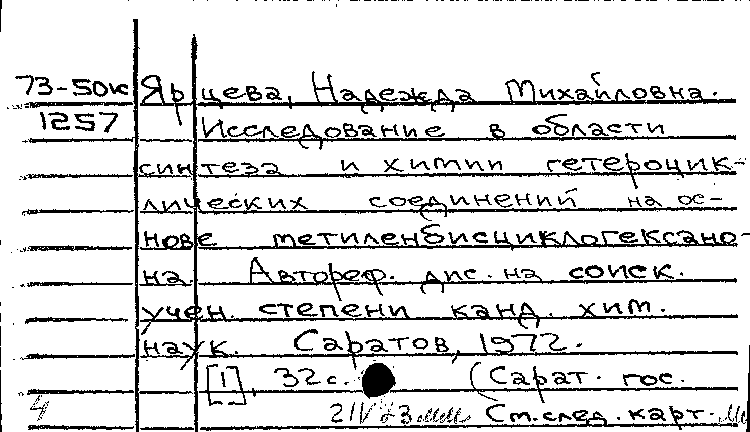 73-50к Ярцева, Надежда Михайловна.
1257 Исследование в области
синтеза и химии гетероцик-
лических соединений на ос-
нове метиленбисциклогексано-
на. Автореф. дис. на соиск.
учен. степени канд. хим.
наук. Саратов, 1972.
[1], 32 с. (Сарат. гос.
4 См. след. карт.